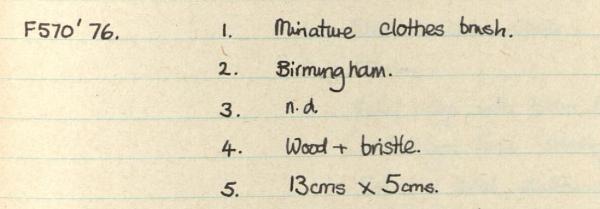 F570'76. 1. Minature clothes brush.
2. Birmingham.
3. n.d
4. Wood + bristle.
5. 13cms x 5cms.